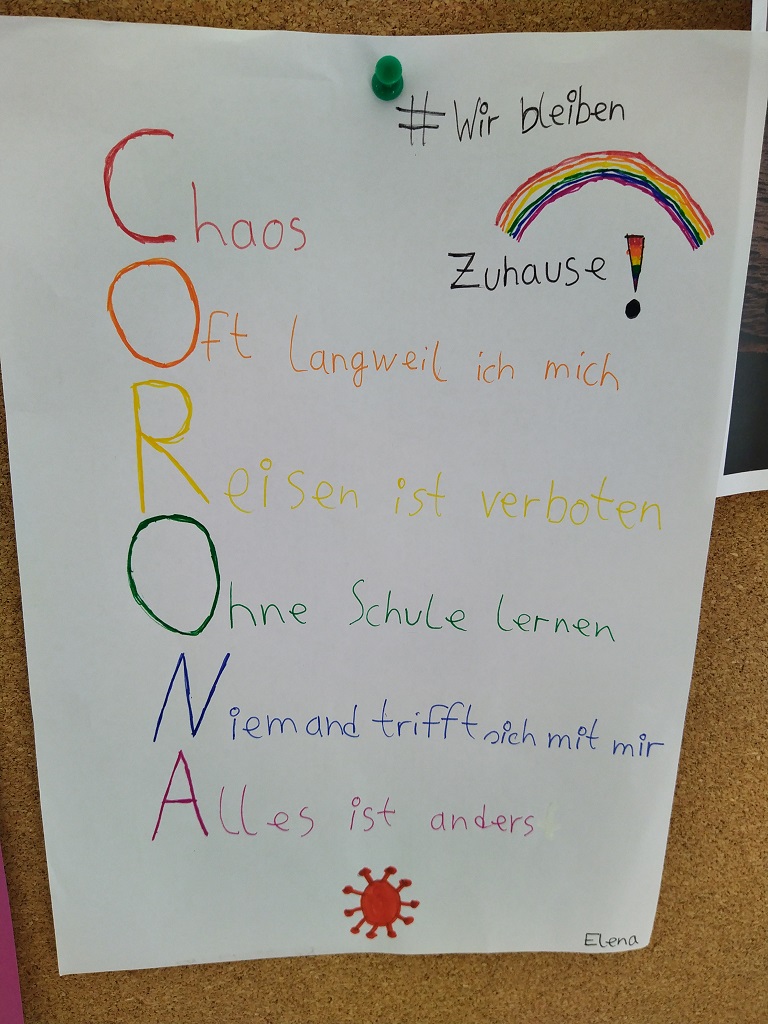 #Wir bleiben
Zuhause!
Chaos
Oft langweil ich mich
Reisen ist verboten
Ohne Schule lernen
Niemand trifft sich mit mir
Alles ist anders
Elena